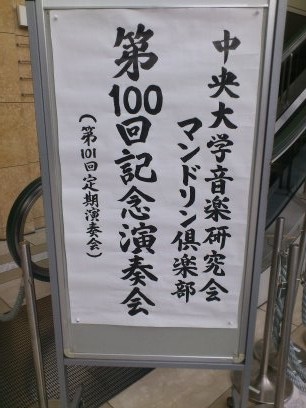 中央大学音楽研究会
マンドリン倶楽部
第100回記念演奏会
(第101回定期演奏会)